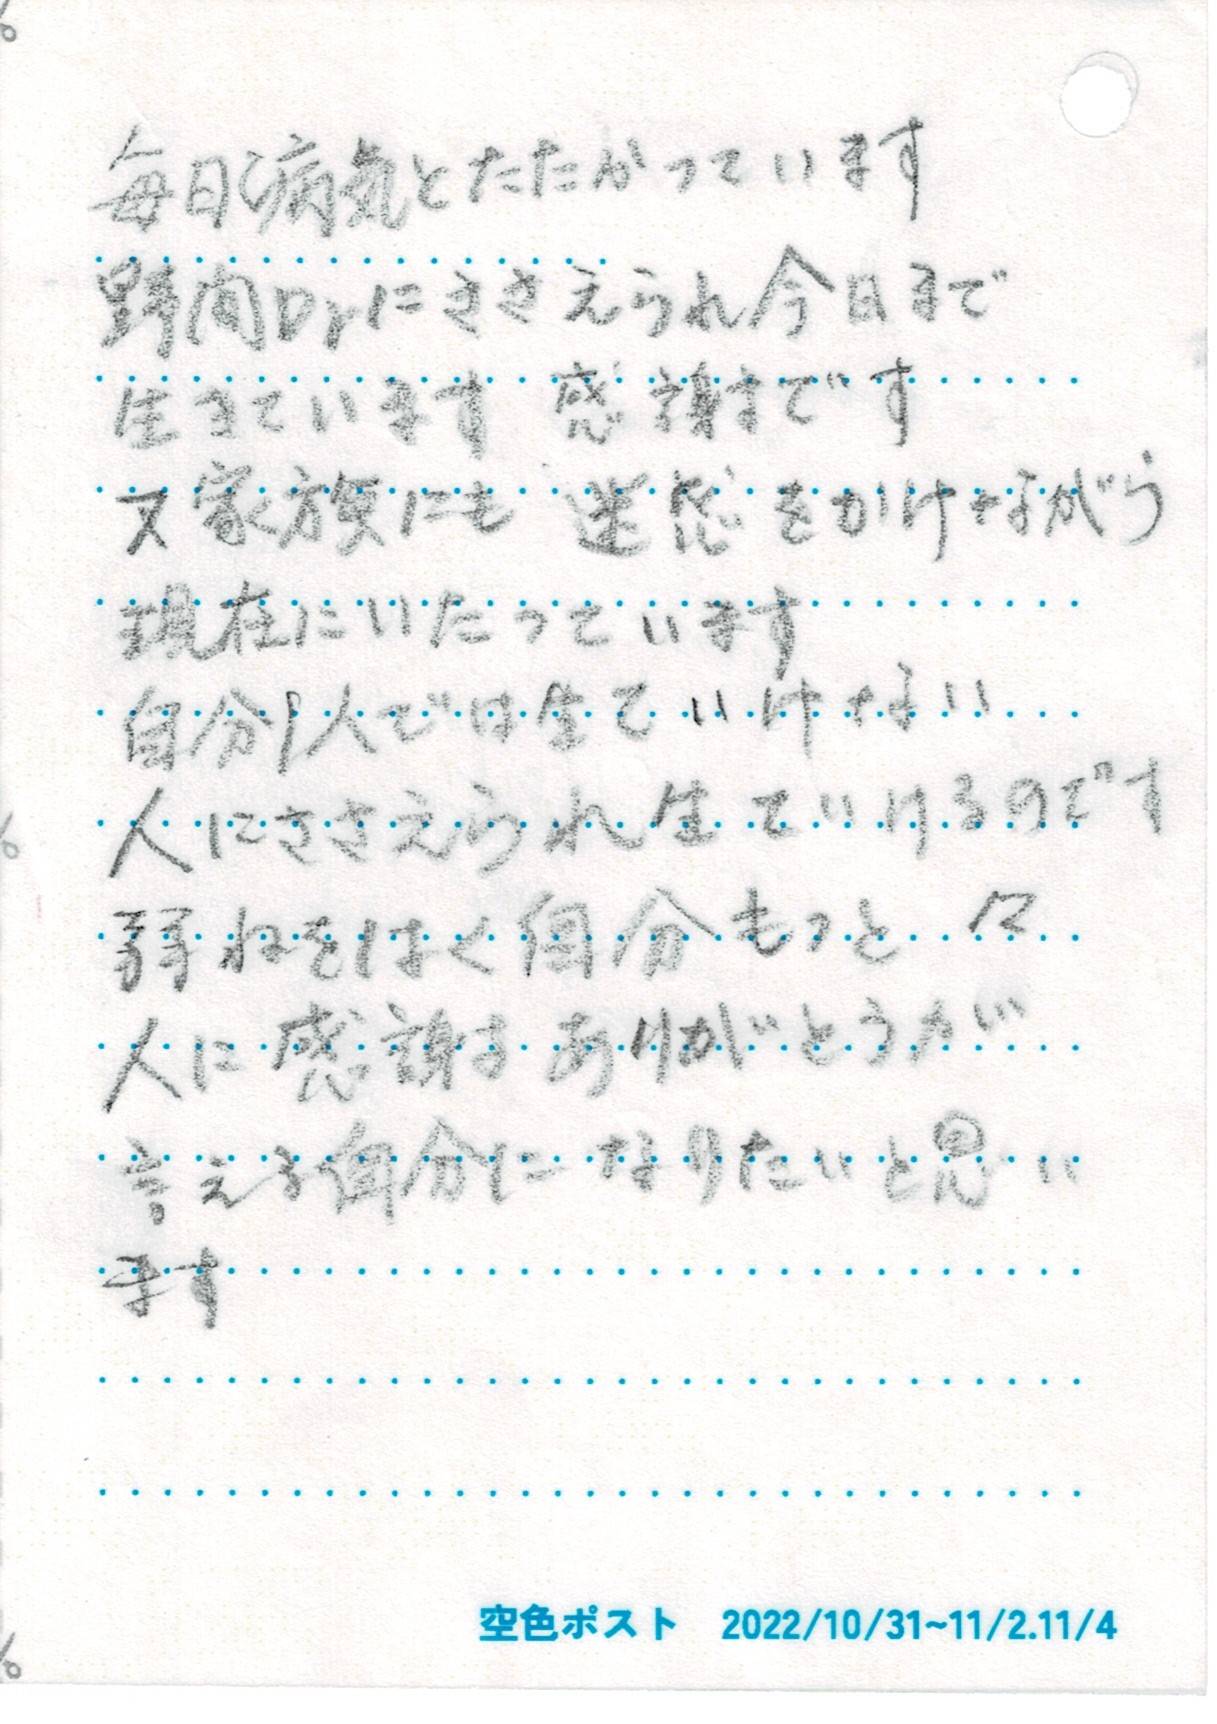 毎日病気とたたかっています
野間Drにささえられ今日まで
生きています 感謝まです
又家族にも 迷惑をかけながら
現在にいたっています
自分1人では生ていけない
人にささえられ生ていけるのです
弱ねをはく自分もっと 々
人に感謝する ありがとうが
言える自分に なりたいと思い
ます
空色ポスト 2022/10/31~11/2.11/4